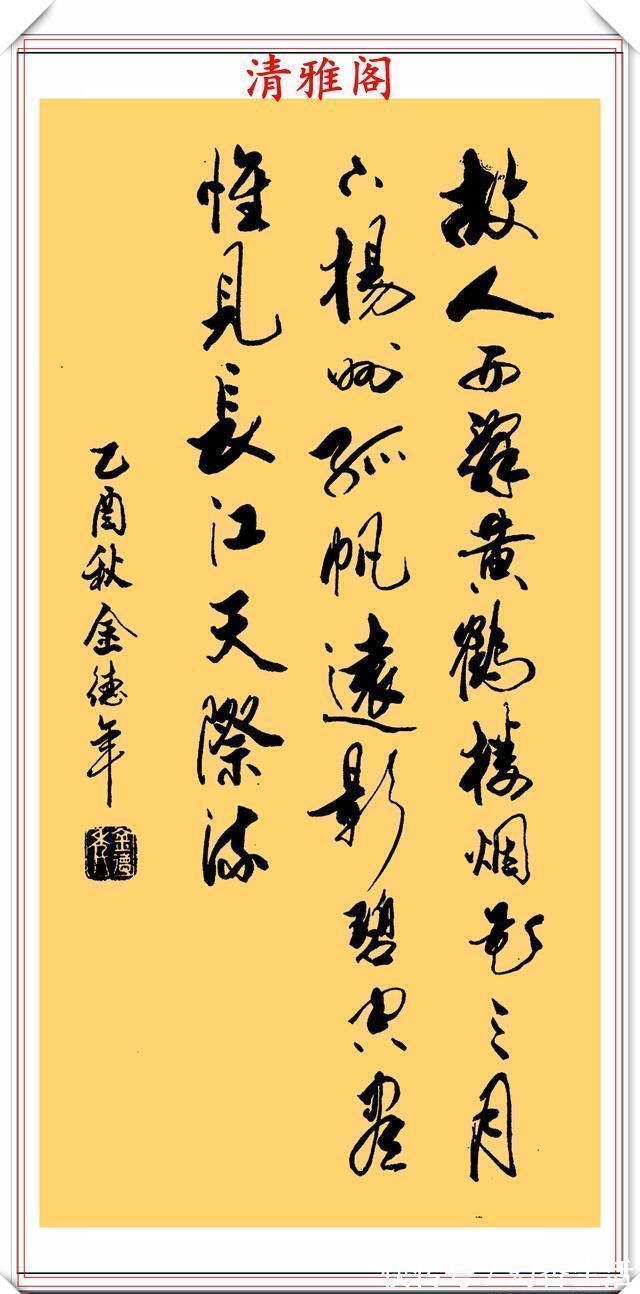 清雅阁
故人西辭黄鶴楼烟花三月
下楊州孤帆遠影碧空盡
惟見長江天際流
乙酉秋金德年
金德年